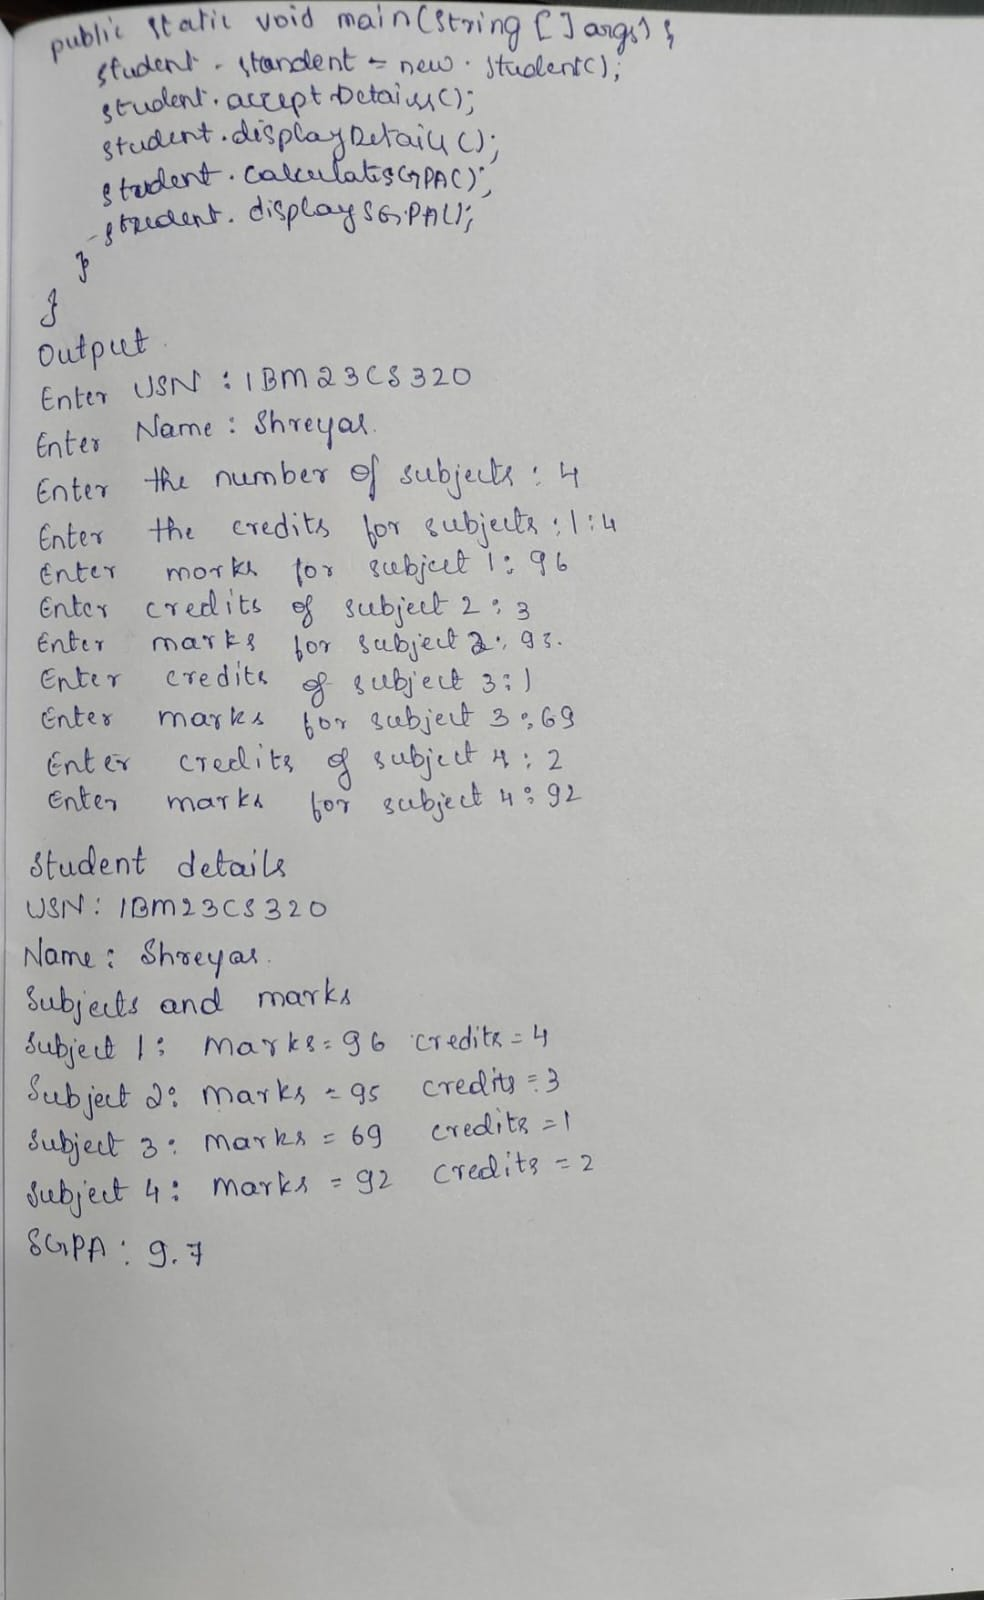 public static void main(String [] args) {
student . standent = new . student();
student.acceptDetails();
student.displayDetails();
student.calculateSGPA();
student.displaySGPA();
}
}
Output
Enter USN : 1BM23CS320
Enter Name : Shreyas.
Enter the number of subjects : 4
Enter the credits for subjects : 1 : 4
Enter marks for subject 1 : 96
Enter credits of subject 2 : 3
Enter marks for subject 2 : 93.
Enter credits of subject 3 : 1
Enter marks for subject 3 : 69
Enter credits of subject 4 : 2
Enter marks for subject 4 : 92
Student details
USN : 1BM23CS320
Name : Shreyas.
Subjects and marks
Subject 1 : Marks = 96 credits = 4
Subject 2 : Marks = 95 credits = 3
Subject 3 : Marks = 69 credits = 1
Subject 4 : Marks = 92 credits = 2
SGPA : 9.7